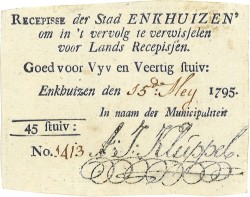 RECEPISSE der Stad ENKHUIZEN
om in 't vervolg te verwisselen
voor Lands Recepissen.
Goed voor Vyv en Veertig stuiv:
Enkhuizen den 15.d Mey 1795.
In naam der Municipaliteit
45 stuiv:
No. 1413 A: J. Kluppel